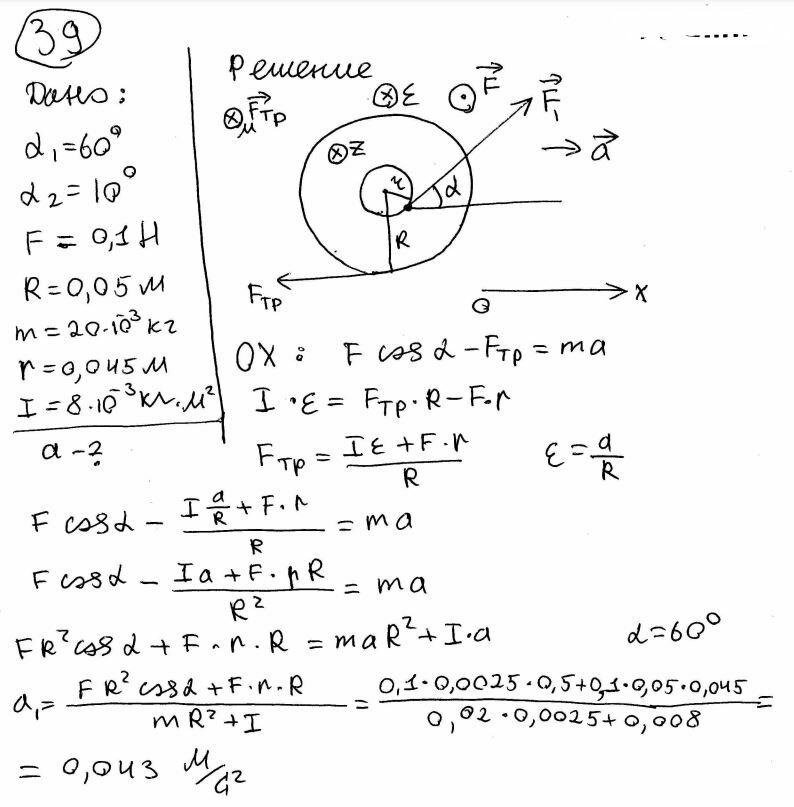 39
Дано:
α₁=60⁰
α₂=10⁰
F = 0,1 Н
R=0,05 м
m=20·10⁻³ кг
r=0,045 м
I=8·10⁻³ кг·м²
a -?
Решение
⊗ M⃗Fтр
⊗ ε
⊙ F⃗
F⃗₁
→ a⃗
⊗ z
r
α
R
Fтр
O
x
OX: F cosα - Fтр = ma
I·ε = Fтр·R - F·r
Fтр = (Iε + F·r)/R ε = a/R
F cosα - (I a/R + F·r)/R = ma
F cosα - (Ia + F·rR)/R² = ma
FR²cosα + F·r·R = maR² + I·a α=60⁰
a₁ = (FR²cosα + F·r·R)/(mR² + I) = (0,1·0,0025·0,5+0,1·0,05·0,045)/(0,02·0,0025+0,008) =
= 0,043 м/с²